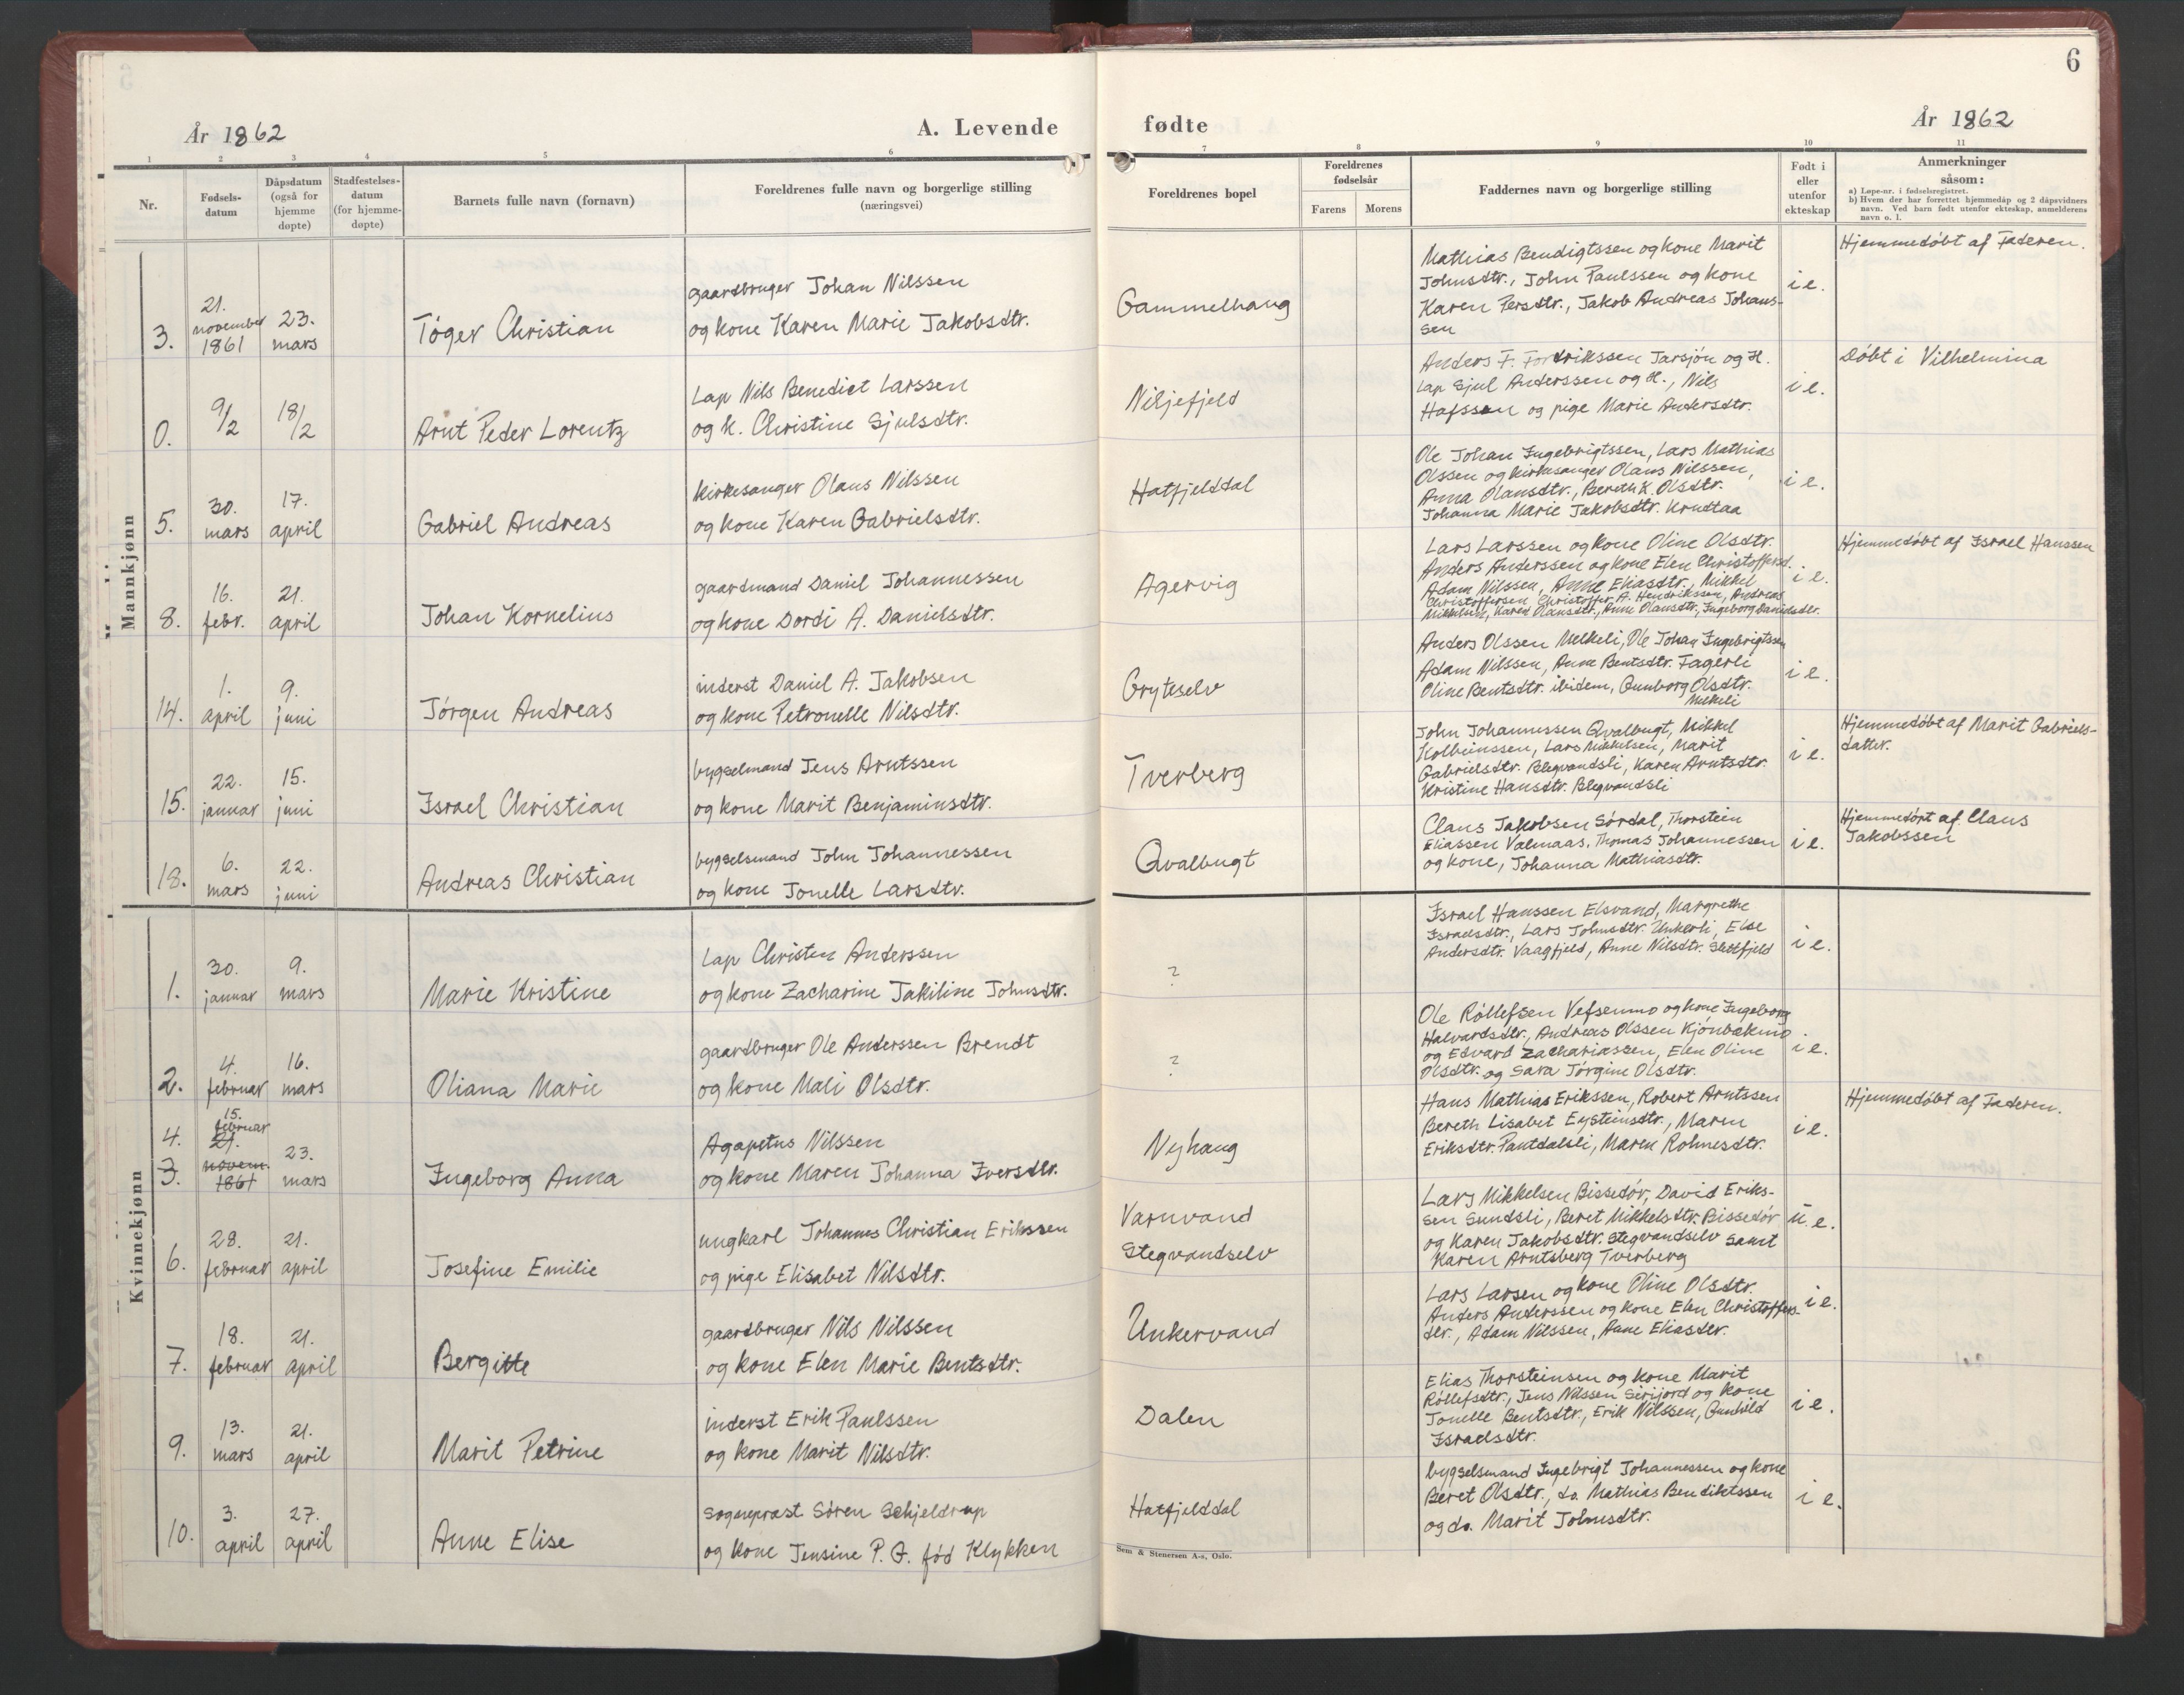 6
År 1862
A. Levende
fødte
År 1862
1 2 3 4 5 6 7 8 9 10 11
Nr.
Fødsels-
datum
Dåpsdatum
(også for
hjemme
døpte)
Stadfestelses-
datum
(for hjemme-
døpte)
Barnets fulle navn (fornavn)
Foreldrenes fulle navn og borgerlige stilling
(næringsvei)
Foreldrenes bopel
Foreldrenes
fødselsår
Farens Morens
Faddernes navn og borgerlige stilling
Født i
eller
utenfor
ekteskap
Anmerkninger
såsom:
a) Løpe-nr. i fødselsregistret.
b) Hvem der har forrettet hjemmedåp og 2 dåpsvidners
navn. Ved barn født utenfor ekteskap, anmelderens
navn o. l.
Mannkjønn
3.
21.
november
1861
23.
mars
Töger Christian
gaardbruger Johan Nilssen
og kone Karen Marie Jakobsdtr.
Gammelhaug
Mathias Bendigtssen og kone Marit
Johnsdtr., John Paulssen og kone
Karen Persdtr., Jakob Andreas Johans-
sen
i e.
Hjemmedöbt af Faderen.
0.
9/2
18/2
Arnt Peder Lorentz
Lap Nils Benedict Larssen
og k. Christine Sjulsdtr.
Niljefjeld
Anders F. Fordrikssen Jarsjön og H.
Lap Sjul Anderssen og H., Nils
Hafssen og pige Marie Andersdtr.
i e.
Döbt i Vilhelmina
5.
30.
mars
17.
april
Gabriel Andreas
Kirkesanger Olaus Nilssen
og kone Karen Gabrielsdtr.
Hatfjelddal
Ole Johan Ingebrigtssen, Lars Mathias
Olssen og kirkesanger Olaus Nilssen,
Anna Olausdtr., Bereth K. Olsdtr.
Johanna Marie Jakobsdtr. Krudtaa
i e.
8.
16.
febr.
21.
april
Johan Kornelius
gaardmand Daniel Johannessen
og kone Dordi A. Danielsdtr.
Agervig
Lars Larssen og kone Oline Olsdtr.
Anders Anderssen og kone Elen Christoffersd.
Adam Nilssen, Anne Eliasdtr., Mikkel
Christoffersen, Christoffer A. Hendrikssen, Andreas
Mikkelsen, Karen Olausdtr., Anne Olausdtr., Ingeborg Danielsdtr.
i e.
Hjemmedöbt af Israel Hanssen
14.
1.
april
9.
juni
Jörgen Andreas
inderst Daniel A. Jakobsen
og kone Petronelle Nilsdtr.
Gryteselv
Anders Olssen Melkeli, Ole Johan Ingebrigtssen
Adam Nilssen, Anne Bentsdtr. Fagerli
Oline Bentsdtr. ibidem, Gunborg Olsdtr.
Melkeli
i e.
15.
22.
januar
15.
juni
Israel Christian
bygselmand Jens Arntssen
og kone Marit Benjaminsdtr.
Tverberg
John Johannessen Qvalbugt, Mikkel
Kolbeinssen, Lars Mikkelsen, Marit
Gabrielsdtr. Blegvandsli, Karen Arntsdtr.
Kristine Hansdtr. Blegvandsli
i e.
Hjemmedöbt af Marit Gabriels-
datter.
18.
6.
mars
22.
juni
Andreas Christian
bygselsmand John Johannessen
og kone Jonelle Larsdtr.
Qvalbugt
Claus Jakobsen Sördal, Thorstein
Eliassen Valmaas, Thomas Johannessen
og kone, Johanna Mathiasdtr.
i e.
Hjemmedört af Claus
Jakobssen
Kvinnekjønn
1.
30.
januar
9.
mars
Marie Kristine
Lap Christen Anderssen
og kone Zacharine Jakiline Johnsdtr.
?
Israel Hanssen Elsvand, Margrethe
Israelsdtr., Lars Johnsdtr. Unkerli, Else
Andersdtr. Vaagfjeld, Anne Nilsdtr. Slettfjeld
i e.
2.
4.
februar
16.
mars
Oliana Marie
gaardbruger Ole Anderssen Brendt
og kone Mali Olsdtr.
?
Ole Röllefsen Vefsenmo og kone Ingeborg
Halvardsdtr., Andreas Olssen Kjönbækmo
og Edvard Zachariassen, Elen Oline
Olsdtr. og Sara Jörgine Olsdtr.
i e.
4.
3.
15.
februar
21.
novem.
1861
23.
mars
Ingeborg Anna
Agapetus Nilssen
og kone Maren Johanna Iversdtr.
Nyhaug
Hans Mathias Erikssen, Robert Arntssen
Bereth Lisabet Eysteinsdtr., Maren
Eriksdtr. Pantdalsli, Maren Rohnesdtr.
i e.
Hjemmedöbt af Faderen.
6.
28.
februar
21.
april
Josefine Emilie
ungkarl Johannes Christian Erikssen
og pige Elisabet Nilsdtr.
Varnvand
Stegvandselv
Lars Mikkelsen Bissedör, David Eriks-
sen Sundsli, Beret Mikkelsdtr. Bissedör
og Karen Jakobsdtr. Stegvandselv samt
Karen Arntsberg Tverberg
u. e.
7.
18.
februar
21.
april
Bergitte
gaardbruger Nils Nilssen
og kone Elen Marie Bentsdtr.
Unkervand
Lars Larsen og kone Oline Olsdtr.
Anders Anderssen og kone Elen Christoffers-
dtr., Adam Nilssen, Anne Eliasdtr.
i e.
9.
13.
mars
21.
april
Marit Petrine
inderst Erik Paulssen
og kone Marit Nilsdtr.
Dalen
Elias Thorsteinsen og kone Marit
Röllefsdtr., Jens Nilssen Sirijord og kone
Jonelle Bentsdtr., Erik Nilssen, Gunhild
Israelsdtr.
i e.
10.
3.
april
27.
april
Anne Elise
Sogneprast Sören Schjeldrup
og kone Jensine P. G. föd Klykken
Hatfjelddal
bygselsmand Ingebrigt Johannessen og kone
Beret Olsdtr., do. Mathias Bendiktssen
og do. Marit Johnsdtr.
i e.
Sem & Stenersen A-s, Oslo.